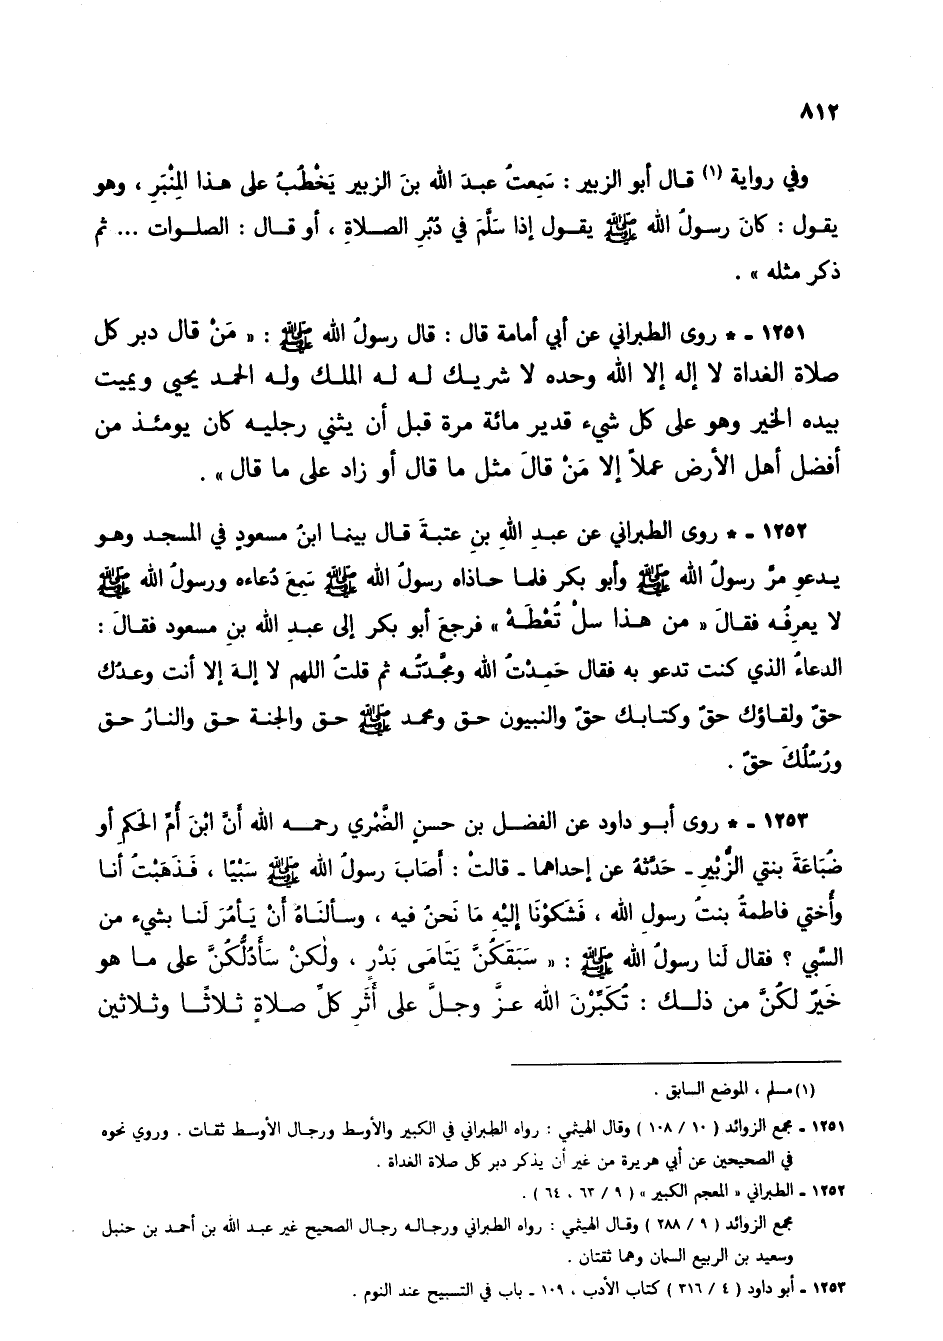 ٨١٢
وفي رواية (١) قال أبو الزبير : سَمِعتُ عبدَ الله بنَ الزبير يَخْطُبُ على هذا المِنْبَرِ ، وهو
يقول : كانَ رسولُ الله ﷺ يقول إذا سَلَّمَ في دُبُرِ الصلاةِ ، أو قال : الصلوات ... ثم
ذكر مثله » .
١٢٥١ - * روى الطبراني عن أبي أمامة قال : قال رسولُ الله ﷺ : « مَنْ قال دبر كل
صلاة الغداة لا إله إلا الله وحده لا شريك له له الملك وله الحمد يحيي ويميت
بيده الخير وهو على كل شيء قدير مائة مرة قبل أن يثني رجليه كان يومئذ من
أفضل أهل الأرض عملاً إلا مَنْ قالَ مثل ما قال أو زاد على ما قال » .
١٢٥٢ - * روى الطبراني عن عبدِ اللهِ بنِ عتبةَ قال بينما ابنُ مسعودٍ في المسجد وهو
يدعو مرَّ رسولُ الله ﷺ وأبو بكر فلما حاذاه رسولُ الله ﷺ سَمِعَ دُعاءه ورسولُ الله ﷺ
لا يعرِفُه فقالَ « من هذا سلْ تُعْطَهْ » فرجعَ أبو بكر إلى عبدِ الله بنِ مسعود فقالَ :
الدعاءُ الذي كنت تدعو به فقال حَمِدْتُ الله ومجَّدتُه ثم قلتُ اللهم لا إلهَ إلا أنت وعدُك
حقّ ولقاؤك حقّ وكتابك حقّ والنبيون حق ومحمد ﷺ حق والجنة حق والنارُ حق
ورُسُلُكَ حقّ .
١٢٥٣ - * روى أبو داود عن الفضل بن حسنٍ الضَّمْري رحمه الله أنَّ ابْنَ أُمِّ الحَكمِ أو
ضُبَاعَةَ بنتي الزُّبَيْرِ - حَدَّثهُ عن إحداهما - قالتْ : أصَابَ رسولُ الله ﷺ سَبْيًا ، فَذَهَبْتُ أنا
وأُختي فاطمةُ بنتُ رسولِ الله ، فَشَكَوْنَا إليْهِ مَا نَحنُ فيه ، وسألنَاهُ أنْ يَأمُرَ لَنا بشيء من
السَّبي ؟ فقال لَنا رسولُ الله ﷺ : « سَبَقَكُنَّ يَتَامَى بَدْرٍ ، ولٰكنْ سَأدُلُّكُنَّ على ما هو
خَيرٌ لكُنَّ من ذلك : تُكَبِّرْنَ الله عزَّ وجلَّ على أَثَرِ كلِّ صلاةٍ ثلاثًا وثلاثين
(١) مسلم ، الموضع السابق .
١٢٥١ - مجمع الزوائد ( ١٠ / ١٠٨ ) وقال الهيثمي : رواه الطبراني في الكبير والأوسط ورجال الأوسط ثقات . وروي نحوه
في الصحيحين عن أبي هريرة من غير أن يذكر دبر كل صلاة الغداة .
١٢٥٢ - الطبراني « المعجم الكبير » ( ٩ / ٦٣ ، ٦٤ ) .
مجمع الزوائد ( ٩ / ٢٨٨ ) وقال الهيثمي : رواه الطبراني ورجاله رجال الصحيح غير عبد الله بن أحمد بن حنبل
وسعيد بن الربيع السمان وهما ثقتان .
١٢٥٣ - أبو داود ( ٤ / ٣١٦ ) كتاب الأدب ، ١٠٩ - باب في التسبيح عند النوم .